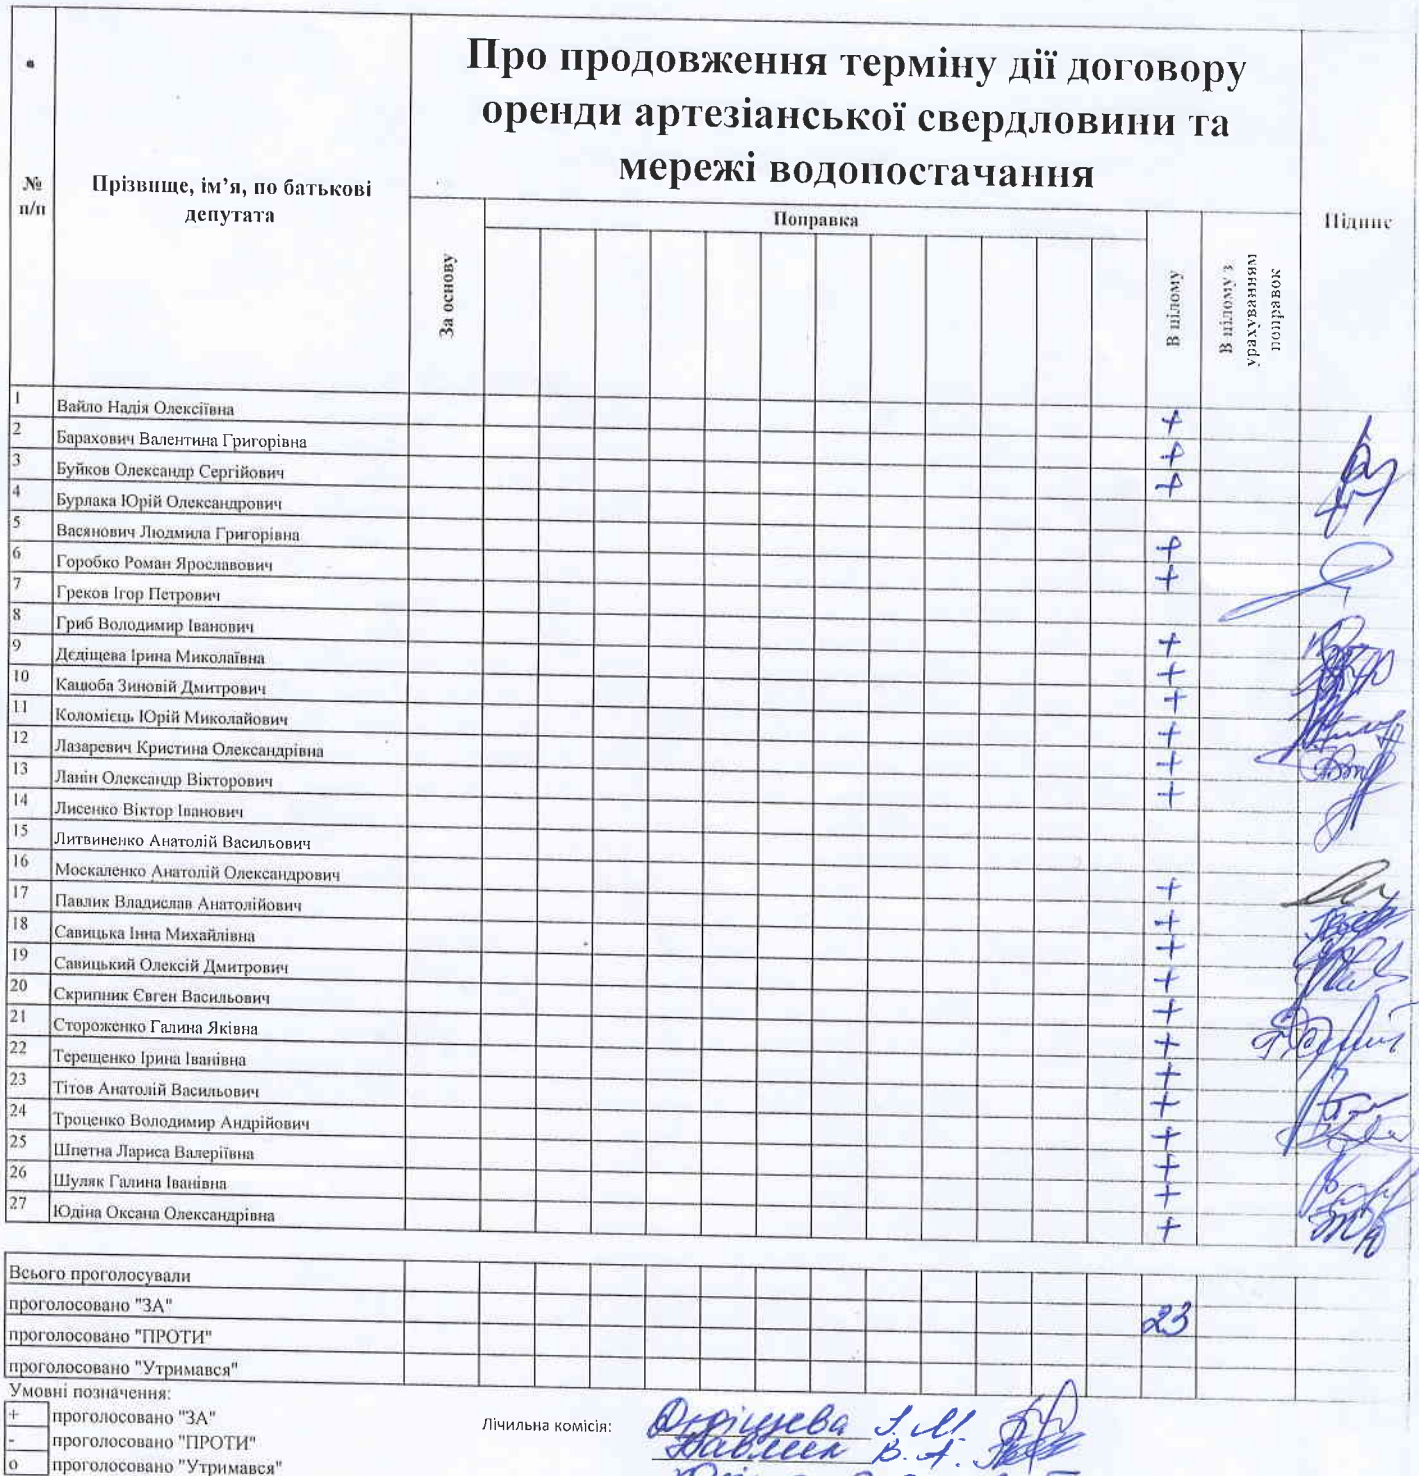 Про продовження терміну дії договору
оренди артезіанської свердловини та
мережі водопостачання
№
п/п
Прізвище, ім’я, по батькові
депутата
За основу
Поправка
В цілому
В цілому з
урахуванням
поправок
Підпис
1 Вайло Надія Олексіївна +
2 Барахович Валентина Григорівна +
3 Буйков Олександр Сергійович +
4 Бурлака Юрій Олександрович
5 Васянович Людмила Григорівна +
6 Горобко Роман Ярославович +
7 Греков Ігор Петрович
8 Гриб Володимир Іванович +
9 Дєдіщева Ірина Миколаївна +
10 Кацюба Зиновій Дмитрович +
11 Коломієць Юрій Миколайович +
12 Лазаревич Кристина Олександрівна +
13 Ланін Олександр Вікторович +
14 Лисенко Віктор Іванович
15 Литвиненко Анатолій Васильович
16 Москаленко Анатолій Олександрович +
17 Павлик Владислав Анатолійович +
18 Савицька Інна Михайлівна +
19 Савицький Олексій Дмитрович +
20 Скрипник Євген Васильович +
21 Стороженко Галина Яківна +
22 Терещенко Ірина Іванівна +
23 Тітов Анатолій Васильович +
24 Троценко Володимир Андрійович +
25 Шпетна Лариса Валеріївна +
26 Шуляк Галина Іванівна +
27 Юдіна Оксана Олександрівна +
Всього проголосували
проголосовано "ЗА" 23
проголосовано "ПРОТИ"
проголосовано "Утримався"
Умовні позначення:
+ проголосовано "ЗА"
- проголосовано "ПРОТИ"
о проголосовано "Утримався"
Лічильна комісія: Дєдіщева І. М.
Павлик В. А.